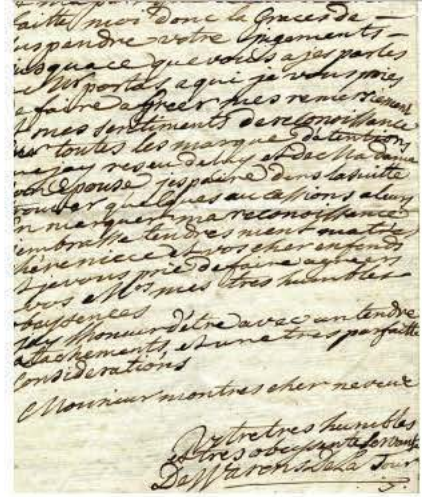 faitte moi donc la Graces de
suspendre votre jugements
jusquace que vous ajes parles
a Mr portas a qui je vous pries
de faire agreer mes remersiement
et mes sentiments de reconoissance
sur toutes les marque d'atentions
que jay reseu de luy et de Madame
son Epouse jespaire dans la suitte
trouver quelques aucassions a luy
en marquer ma reconoissance
jembrasse tendresment ma tres
chere niece et vos cher enfends
et je vous prie de faire agreer
mes tres humbles
obaysences
jay Monsieur d'être avec un tendre
atachements et une tres parfaitte
Considerations
Monsieur mon tres cher neveux
Votre tres humbles
et tres obaysente servante
De Warens De La Tour